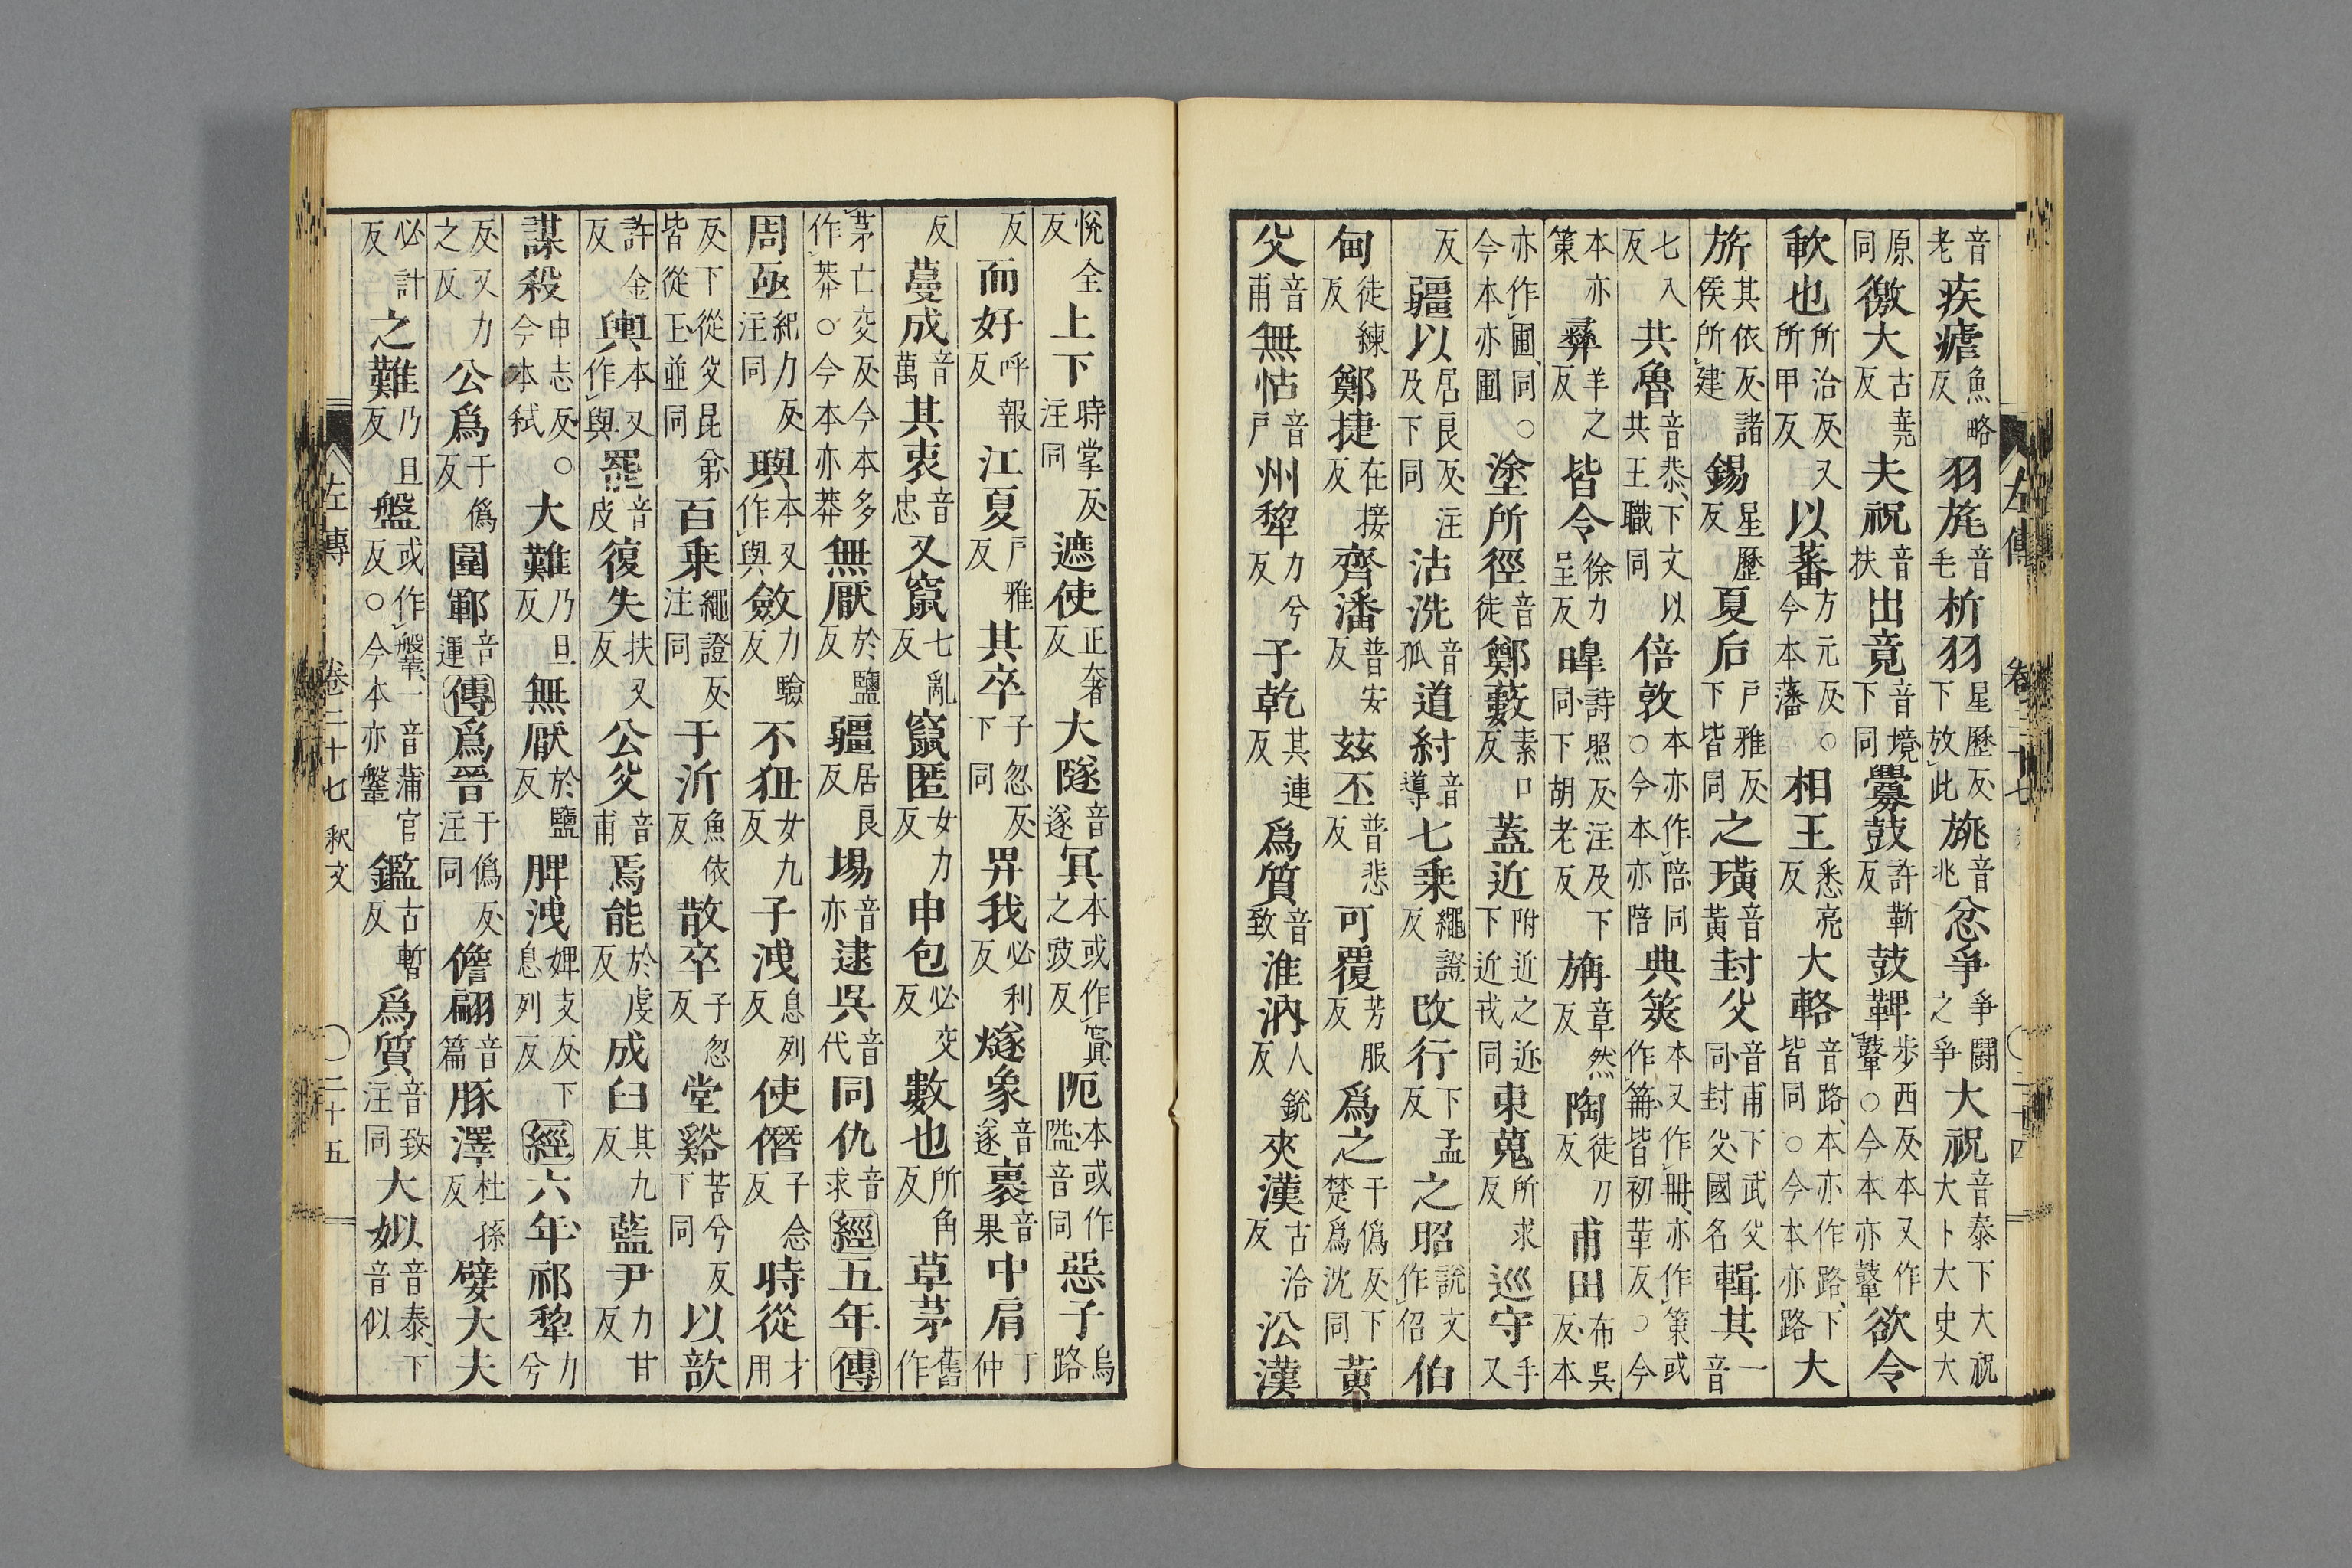 左傳 卷二十七 二十四
音老疾瘧魚略反羽旄音毛析羽星歷反下放此旐音兆忿爭爭鬪之爭大祝音泰下大祝大卜大史大
原同徼大古堯反夫祝音扶出竟音境下同釁鼓許靳反鼓鞞步西反本又作鼙○今本亦鼙欲令
軟也所洽反又所甲反以蕃方元反○今本藩相王悉亮反大輅音路本亦作路下皆同○今本亦路大
旂其依反諸侯所建錫星歷反夏后戶雅反下皆同之璜音黃封父音甫下武父同封父國名輯其一音
七入反共魯音恭下文以共王職同倍敦本亦作陪同○今本亦陪典筴本又作冊亦作策或作皆初革反○今
本亦策彝羊之反皆令徐力呈反皥詩照反注及下同下胡老反旃章然反陶徒刀反甫田布吳反本
亦作圃同○今本亦圃塗所徑音徒鄭藪素口反蓋近附近之近下近戎同東蒐所求反巡守手又
反疆以居良反注及下同沽洗音孤道紂音導七乘繩證反改行下孟反之昭說文作佋伯
甸徒練反鄭捷在接反齊潘普安反茲丕普悲反可覆芳服反爲之于僞反下楚爲沈同黃
父音甫無怙音戶州犂力兮反子乾其連反爲質音致淮汭人銳反夾漢古洽反㳂漢
悅全反上下時掌反注同遮使正奢反大隧音遂冥本或作寘之豉反阨本或作隘音同惡子烏路
反而好呼報反江夏戶雅反其卒子忽反下同畀我必利反燧象音遂裹音果中肩丁仲
反蔓成音萬其衷音忠又竄七亂反竄匿女力反申包必交反數也所角反草茅舊作
茅亡交反今本多作莽○今本亦莽無厭於鹽反疆居良反埸音亦逮吳音代同仇音求經五年傳
周亟紀力反注同璵本又作與斂力驗反不狃女九反子洩息列反使僭子念反時從才用
反下從父昆弟皆從王並同百乘繩證反注同于沂魚依反散卒子忽反堂谿苦兮反下同以歆
許金反輿本又作與罷音皮復失扶又反公父音甫焉能於虔反成臼其九反藍尹力甘反
謀殺申志反○今本弒大難乃旦反無厭於鹽反脾洩婢支反下息列反經六年祁犂力兮
反又力之反公爲于僞反圍鄆音運傳爲晉于僞反注同儋翩音篇豚澤杜孫反嬖大夫
必計反之難乃旦反盤或作鞶一音蒲官反○今本亦鞶鑑古暫反爲質音致注同大姒音泰下音似
左傳 卷二十七 釈文 二十五